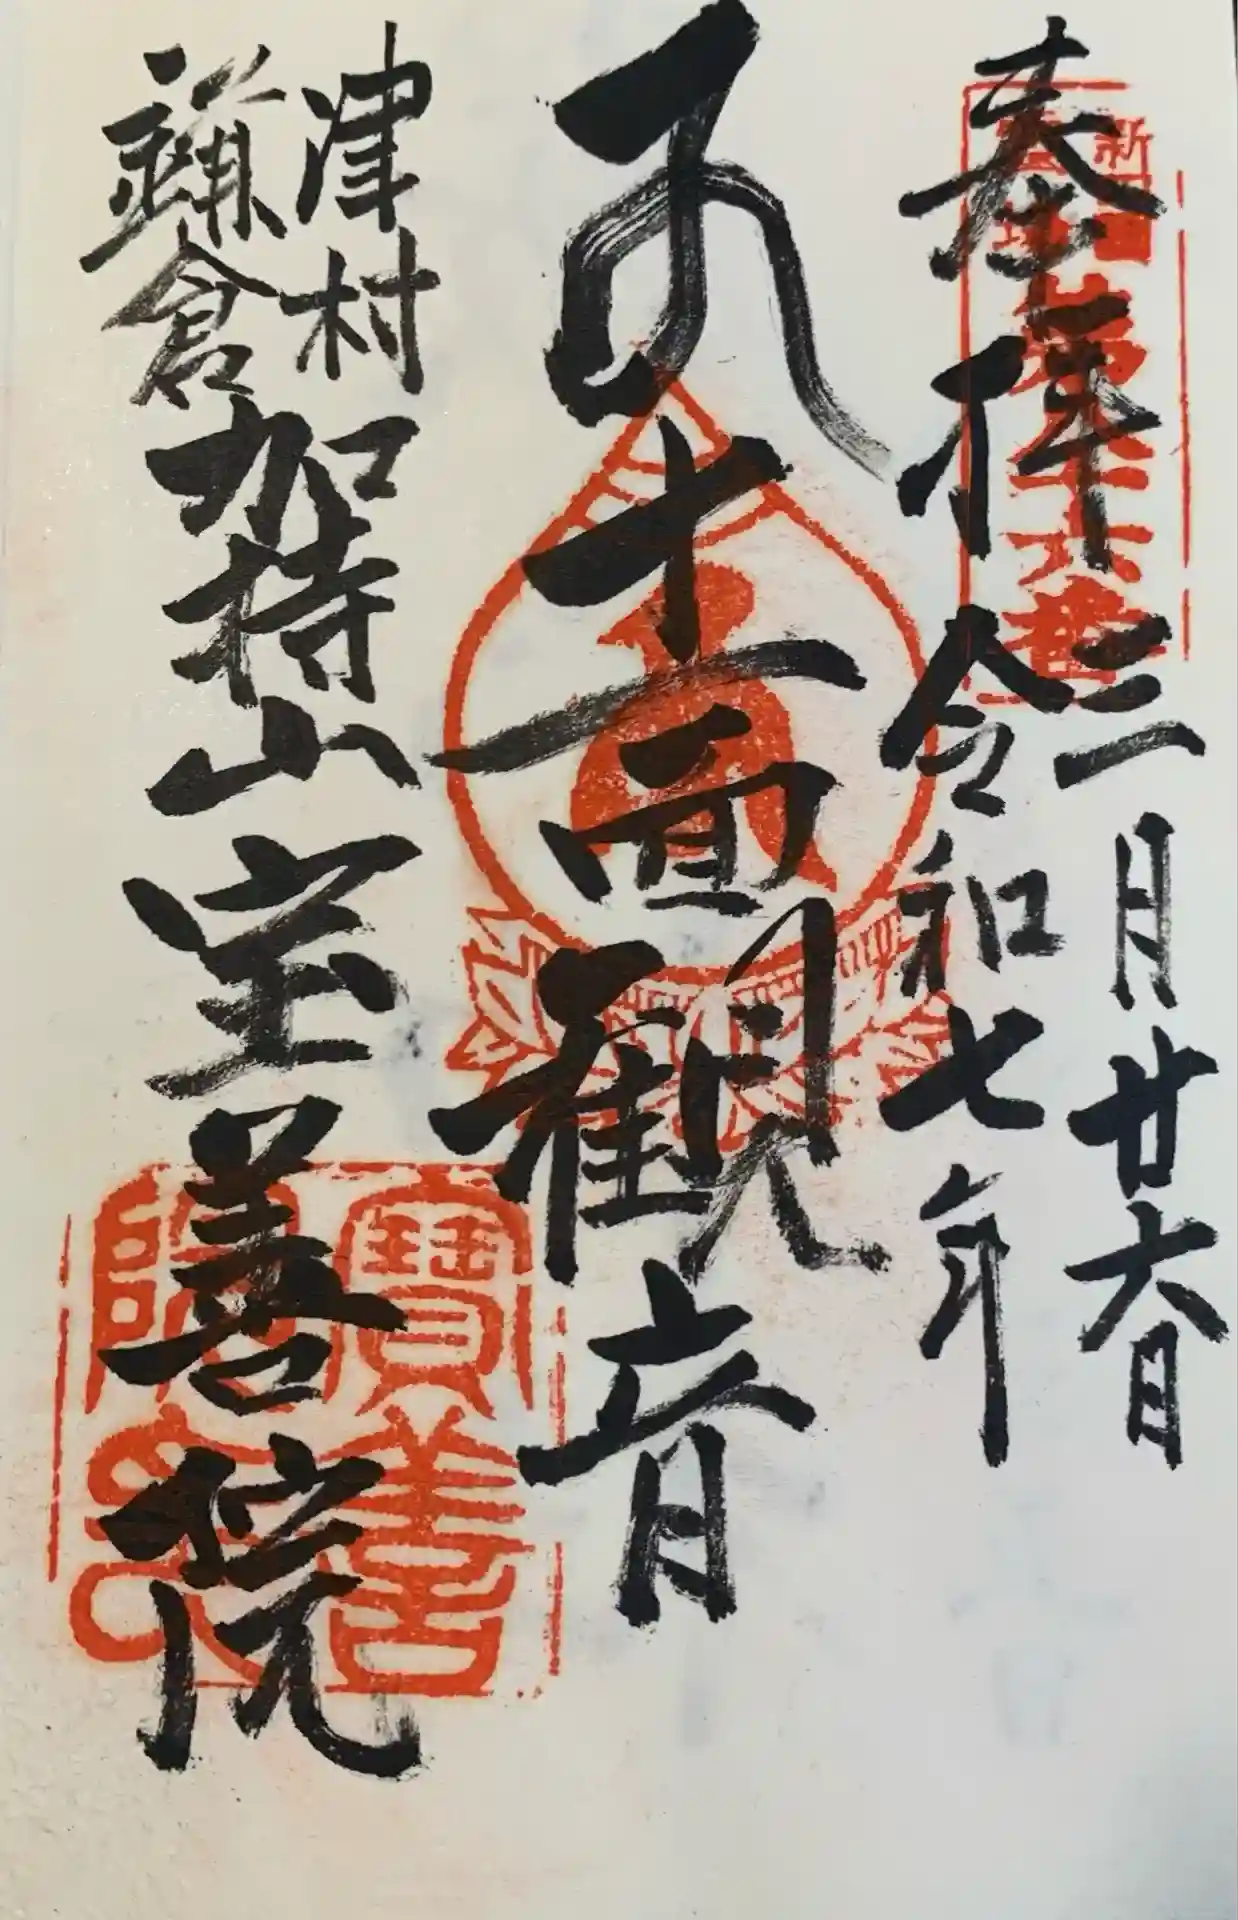 奉拝
三月廿六日
令和七年
十一面観音
津村
鎌倉
加持山宝善院
寶善院